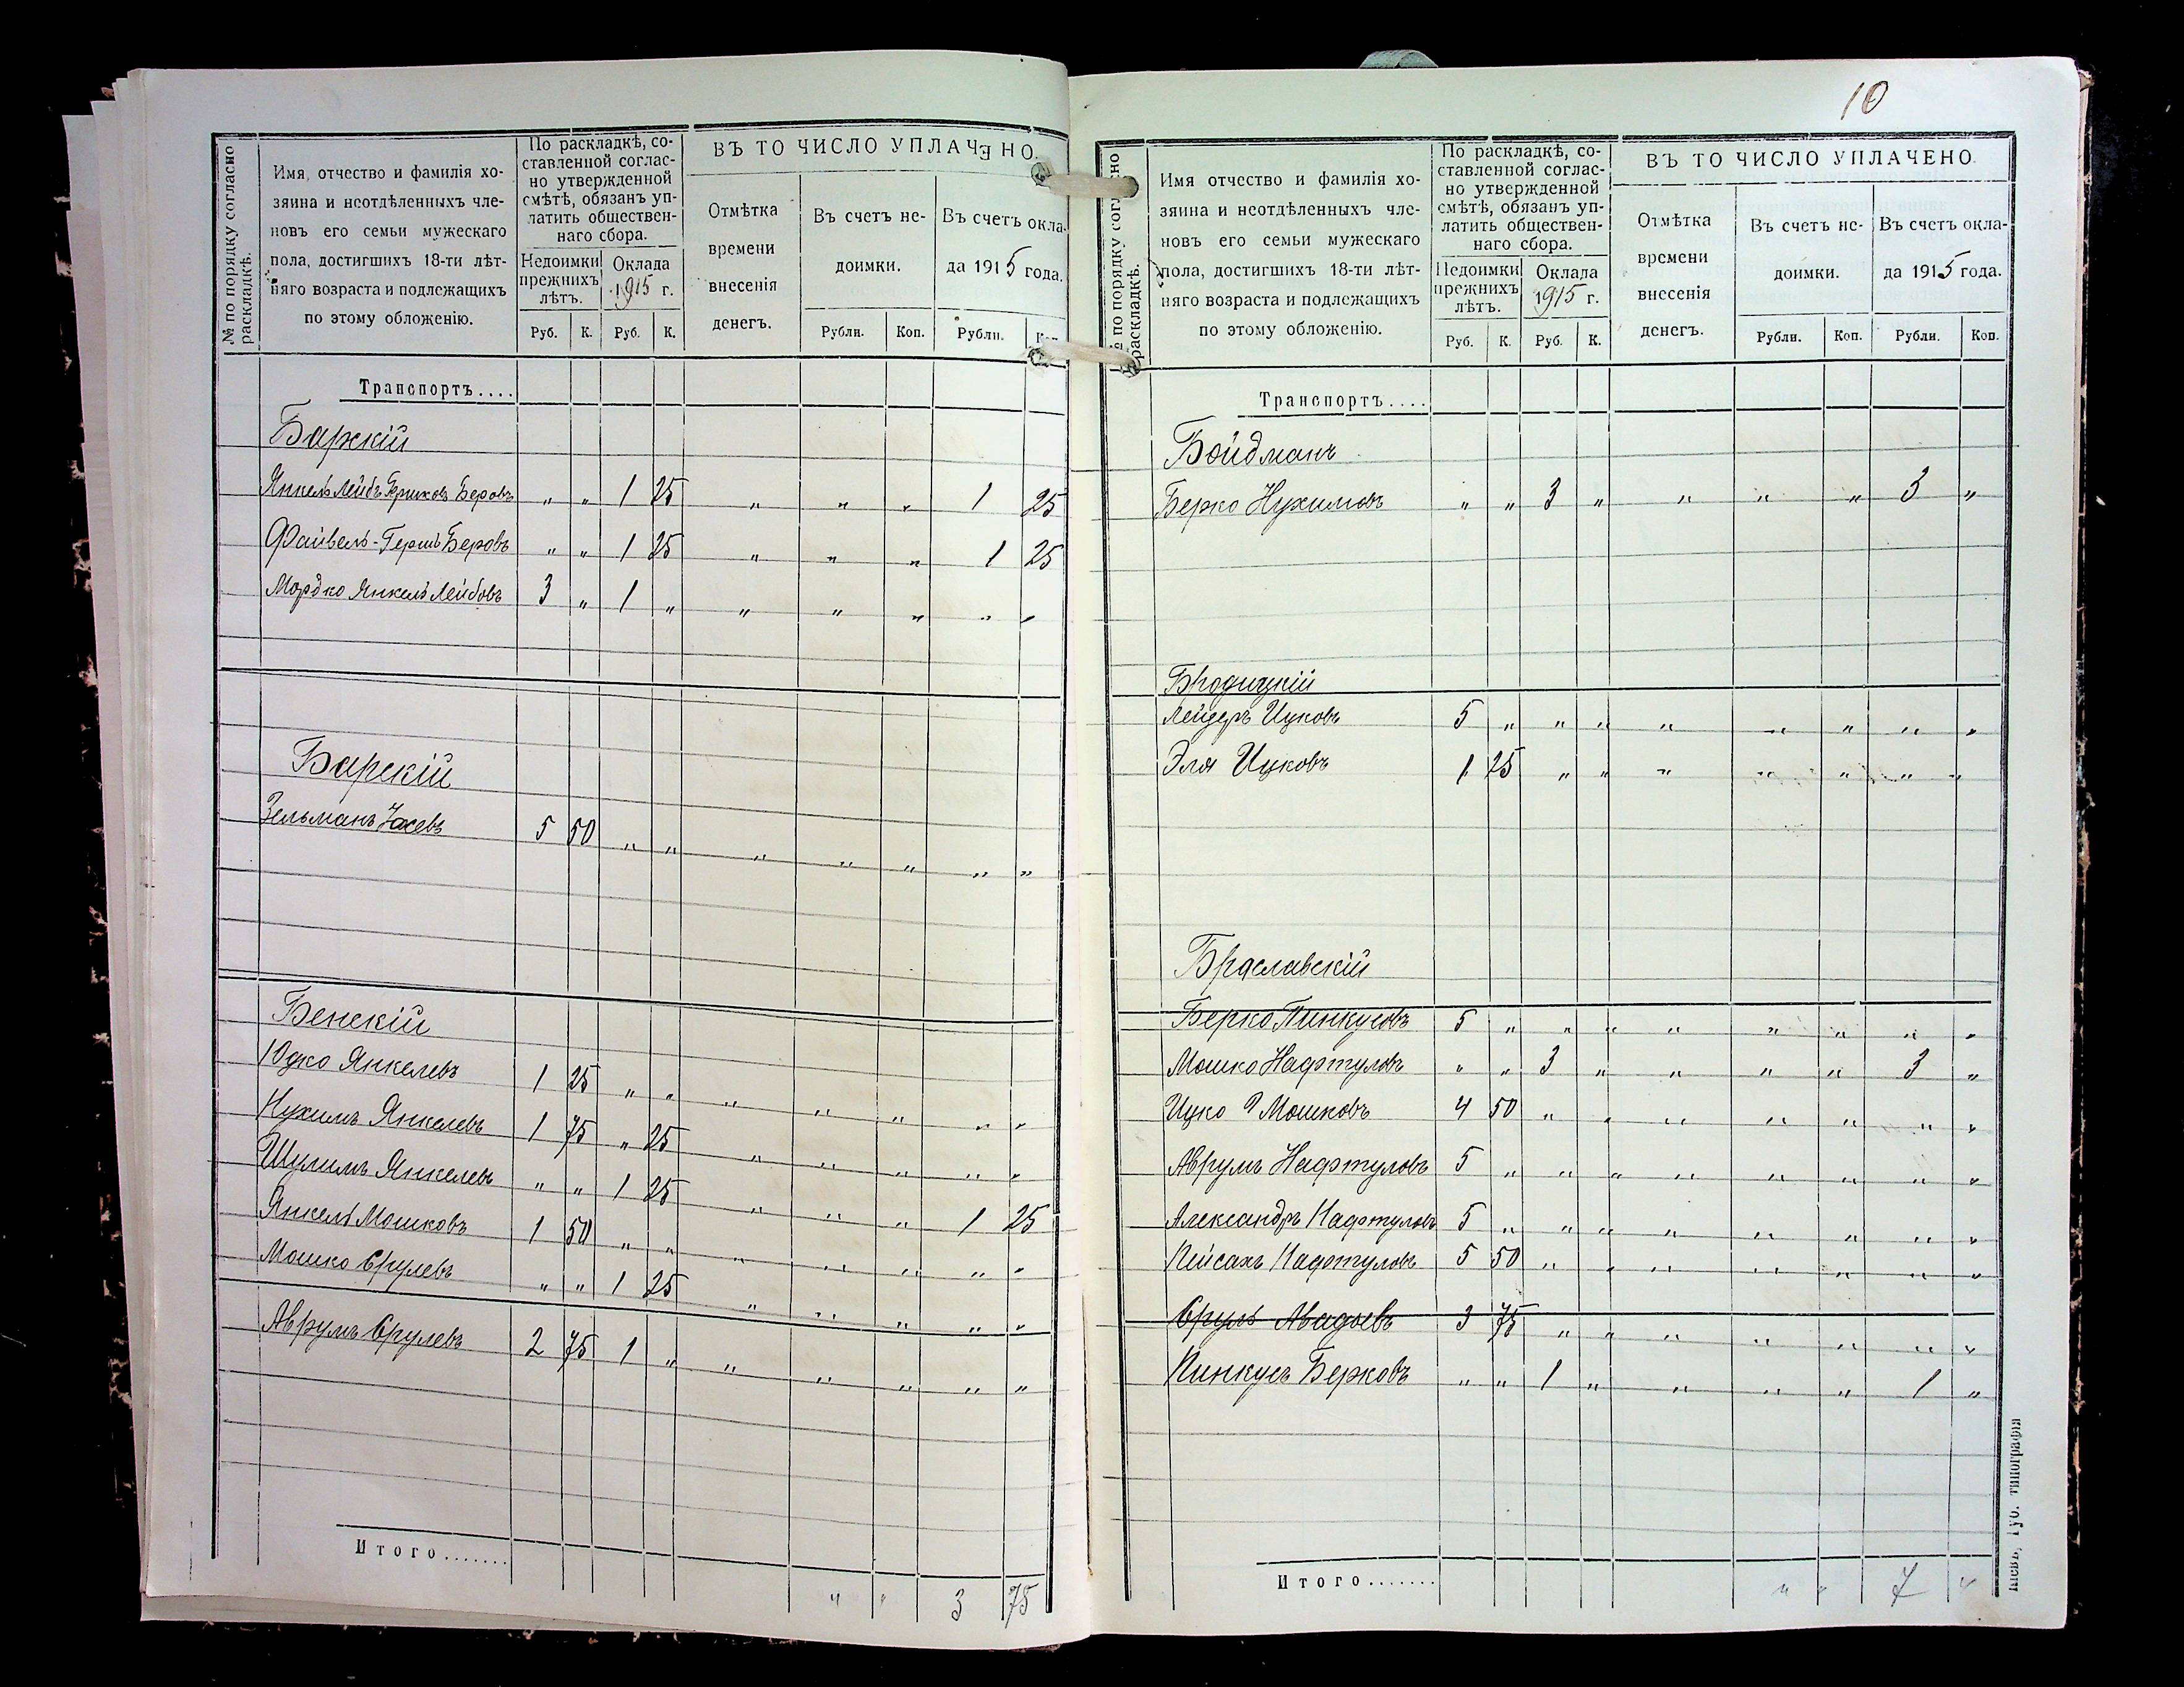 № по порядку согласно раскладкѣ.
Имя, отчество и фамилія хо-
зяина и неотдѣленныхъ чле-
новъ его семьи мужескаго
пола, достигшихъ 18-ти лѣт-
няго возраста и подлежащихъ
по этому обложенію.
По раскладкѣ, со-
ставленной соглас-
но утвержденной
смѣтѣ, обязанъ уп-
латить обществен-
наго сбора.
Недоимки прежнихъ лѣтъ.
Оклада 1915 г.
Руб. К. Руб. К.
ВЪ ТО ЧИСЛО УПЛАЧЕНО.
Отмѣтка времени внесенія денегъ.
Въ счетъ не-доимки.
Въ счетъ окла-да 1915 года.
Рубли. Коп. Рубли. Коп.
Транспортъ....
Барскій
Янкель Лейбъ Беровъ " " 1 25 " " " 1 25
Файвель-Герш Беровъ " " 1 25 " " " 1 25
Мордко Янкель Лейбовъ 3 " 1 " " " " " "
Барскій
Зельманъ 5 50 " " " " " " "
Бенскій
Юдко Янкелевъ 1 25 " " " " " " "
Нухимъ Янкелевъ 1 75 " 25 " " " " "
Шулимъ Янкелевъ " " 1 25 " " " 1 25
Янкель Мошковъ 1 50 " " " " " " "
Мошко Срулевъ " " 1 25 " " " " "
Аврумъ Срулевъ 2 75 1 " " " " " "
Итого....... " " 3 75
10
№ по порядку согласно раскладкѣ.
Имя отчество и фамилія хо-
зяина и неотдѣленныхъ чле-
новъ его семьи мужескаго
пола, достигшихъ 18-ти лѣт-
няго возраста и подлежащихъ
по этому обложенію.
По раскладкѣ, со-
ставленной соглас-
но утвержденной
смѣтѣ, обязанъ уп-
латить обществен-
наго сбора.
Недоимки прежнихъ лѣтъ.
Оклада 1915 г.
Руб. К. Руб. К.
ВЪ ТО ЧИСЛО УПЛАЧЕНО.
Отмѣтка времени внесенія денегъ.
Въ счетъ не-доимки.
Въ счетъ окла-да 1915 года.
Рубли. Коп. Рубли. Коп.
Транспортъ....
Бойдманъ
Берко Нухимовъ " " 3 " " " " 3 "
Бродицкій
Лейзеръ Ицковъ 5 " " " " " " " "
Эля Ицковъ 1 25 " " " " " " "
Браславскій
Берко Пинкусовъ 5 " " " " " " " "
Мошко Нафтуловъ " " 3 " " " " 3 "
Ицко Мошковъ 4 50 " " " " " " "
Аврумъ Нафтуловъ 5 " " " " " " " "
Александръ Нафтуловъ 5 " " " " " " " "
Пейсахъ Нафтуловъ 5 50 " " " " " " "
Сруль Авадьевъ 3 75 " " " " " " "
Пинкусъ Берковъ " " 1 " " " " 1 "
Итого....... " " 7 "
Кіевъ, Губ. типографія